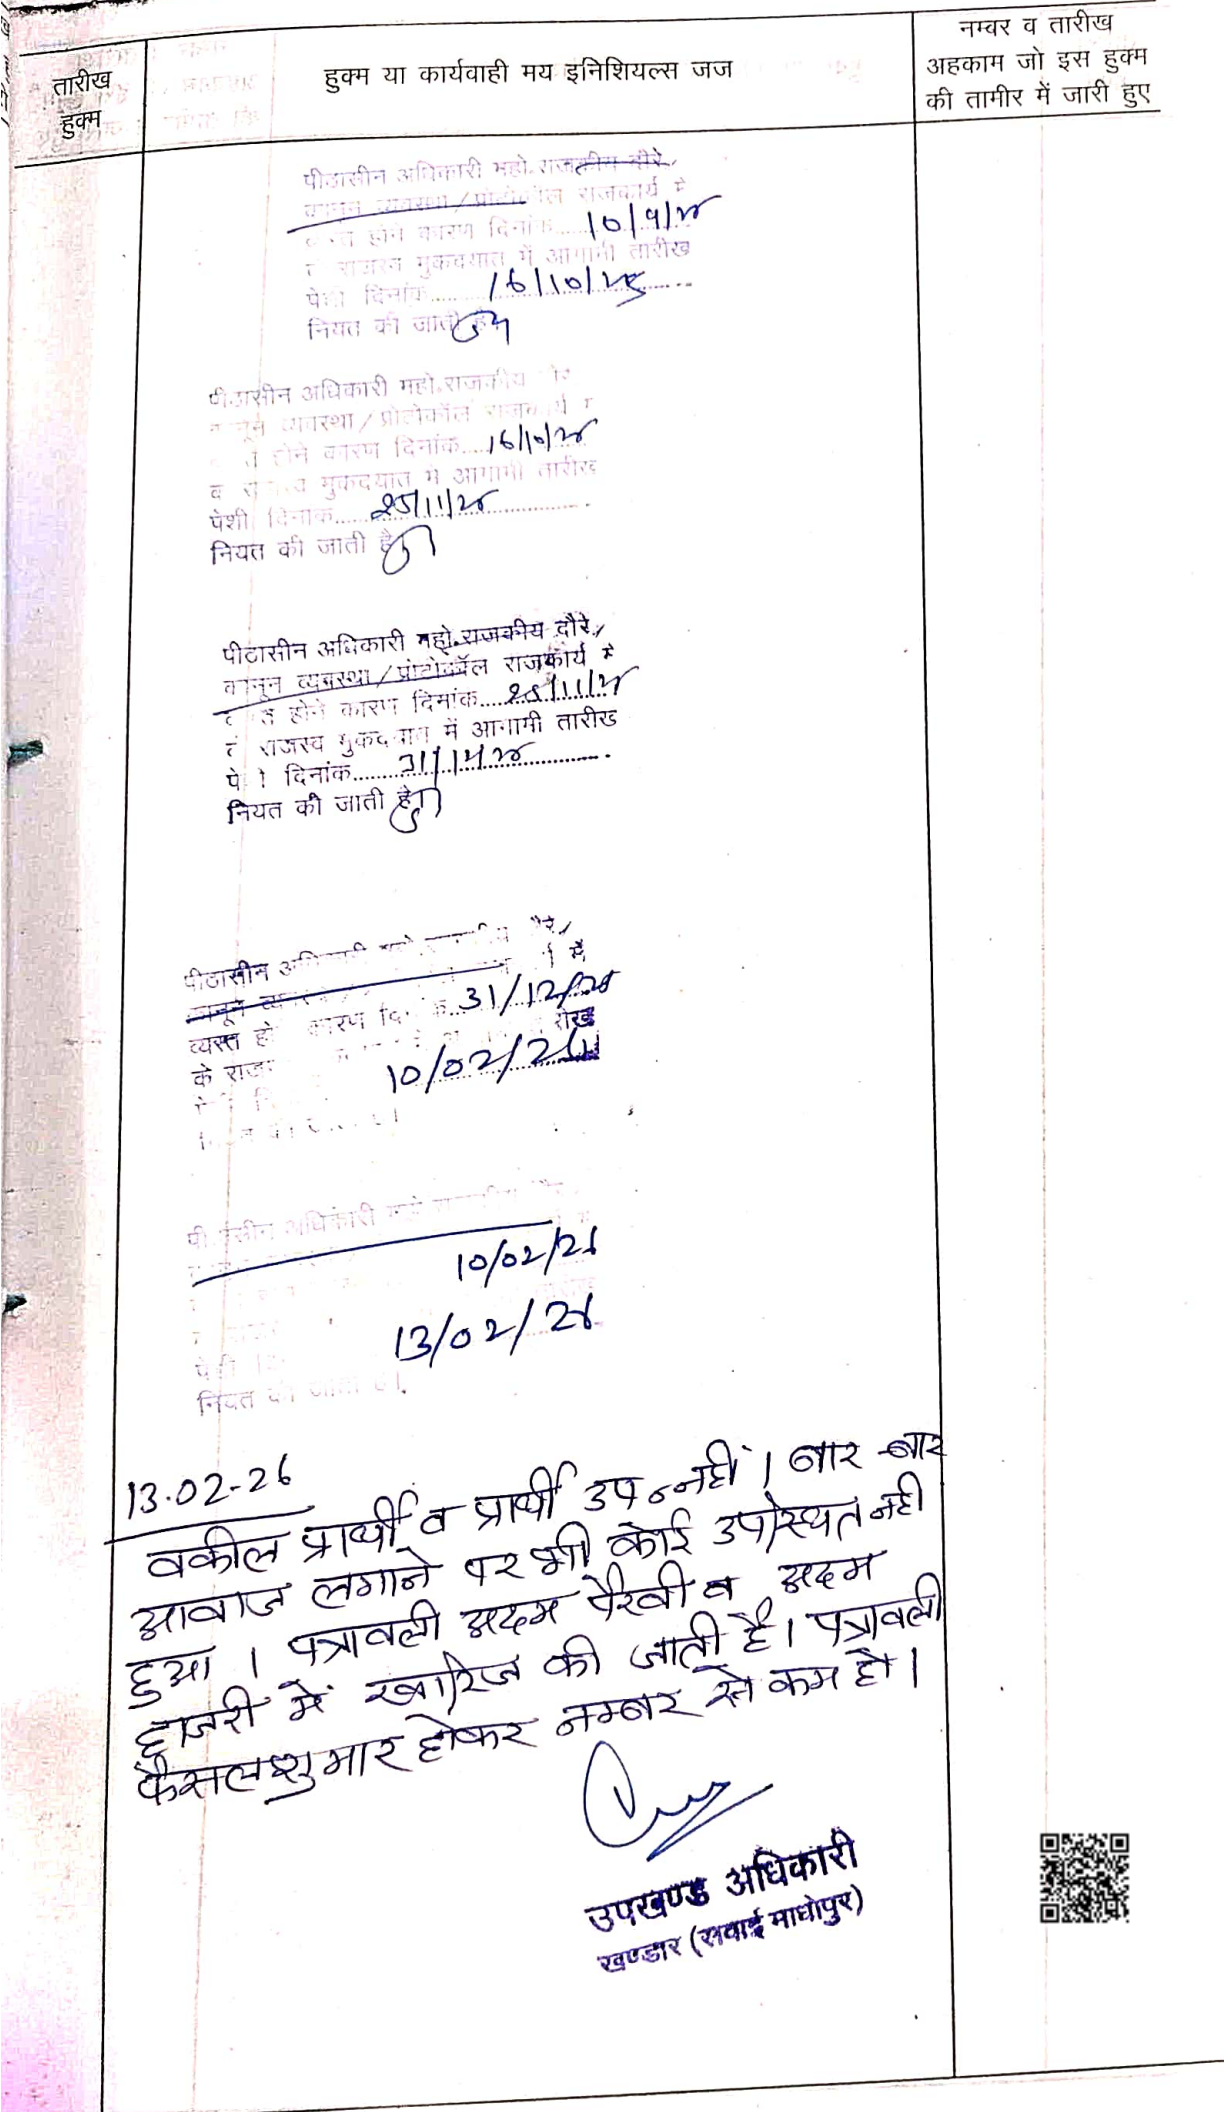 तारीख
हुक्म
हुक्म या कार्यवाही मय इनिशियल्स जज
नम्वर व तारीख
अहकाम जो इस हुक्म
की तामीर में जारी हुए
पीठासीन अधिकारी महो.राजकीय दौरे,
कानून व्यवस्था/प्रोटोकॉल राजकार्य मे
होने कारण दिनांक.....10/9/25
राजस्व मुकदयात में आगामी तारीख
पेशी दिनांक.......16/10/25
नियत की जाती है
पीठासीन अधिकारी महो.राजकीय
व्यवस्था/प्रोटोकॉल राजकार्य
होने कारण दिनांक....16/10/25
मुकदयात में आगामी तारीख
पेशी दिनांक.....25/11/25
नियत की जाती है
पीटासीन अधिकारी महो.राजकीय दौरे,
कानून व्यवस्था/प्रोटोकॉल राजकार्य मे
होने कारण दिनांक....25/11/25
राजस्व मुकदयात में आगामी तारीख
पे ी दिनांक.....31/12/25
नियत की जाती है
पीठासीन
कानून
व्यस्त कारण 31/12/25
के 10/02/26
पी सीन अधिकारी
10/02/26
13/02/26
नियत की जाती है।
13.02-26
वकील प्रार्थी व प्रार्थी उप० नहीं। बार-बार
आवाज लगाने पर भी कोई उपस्थित नही
हुआ। पत्रावली अदम पैरवी व अदम
हाजरी में खारिज की जाती है। पत्रावली
फैसलशुमार होकर नम्बर से कम हो।
उपखण्ड अधिकारी
खण्डार (सवाई माधोपुर)